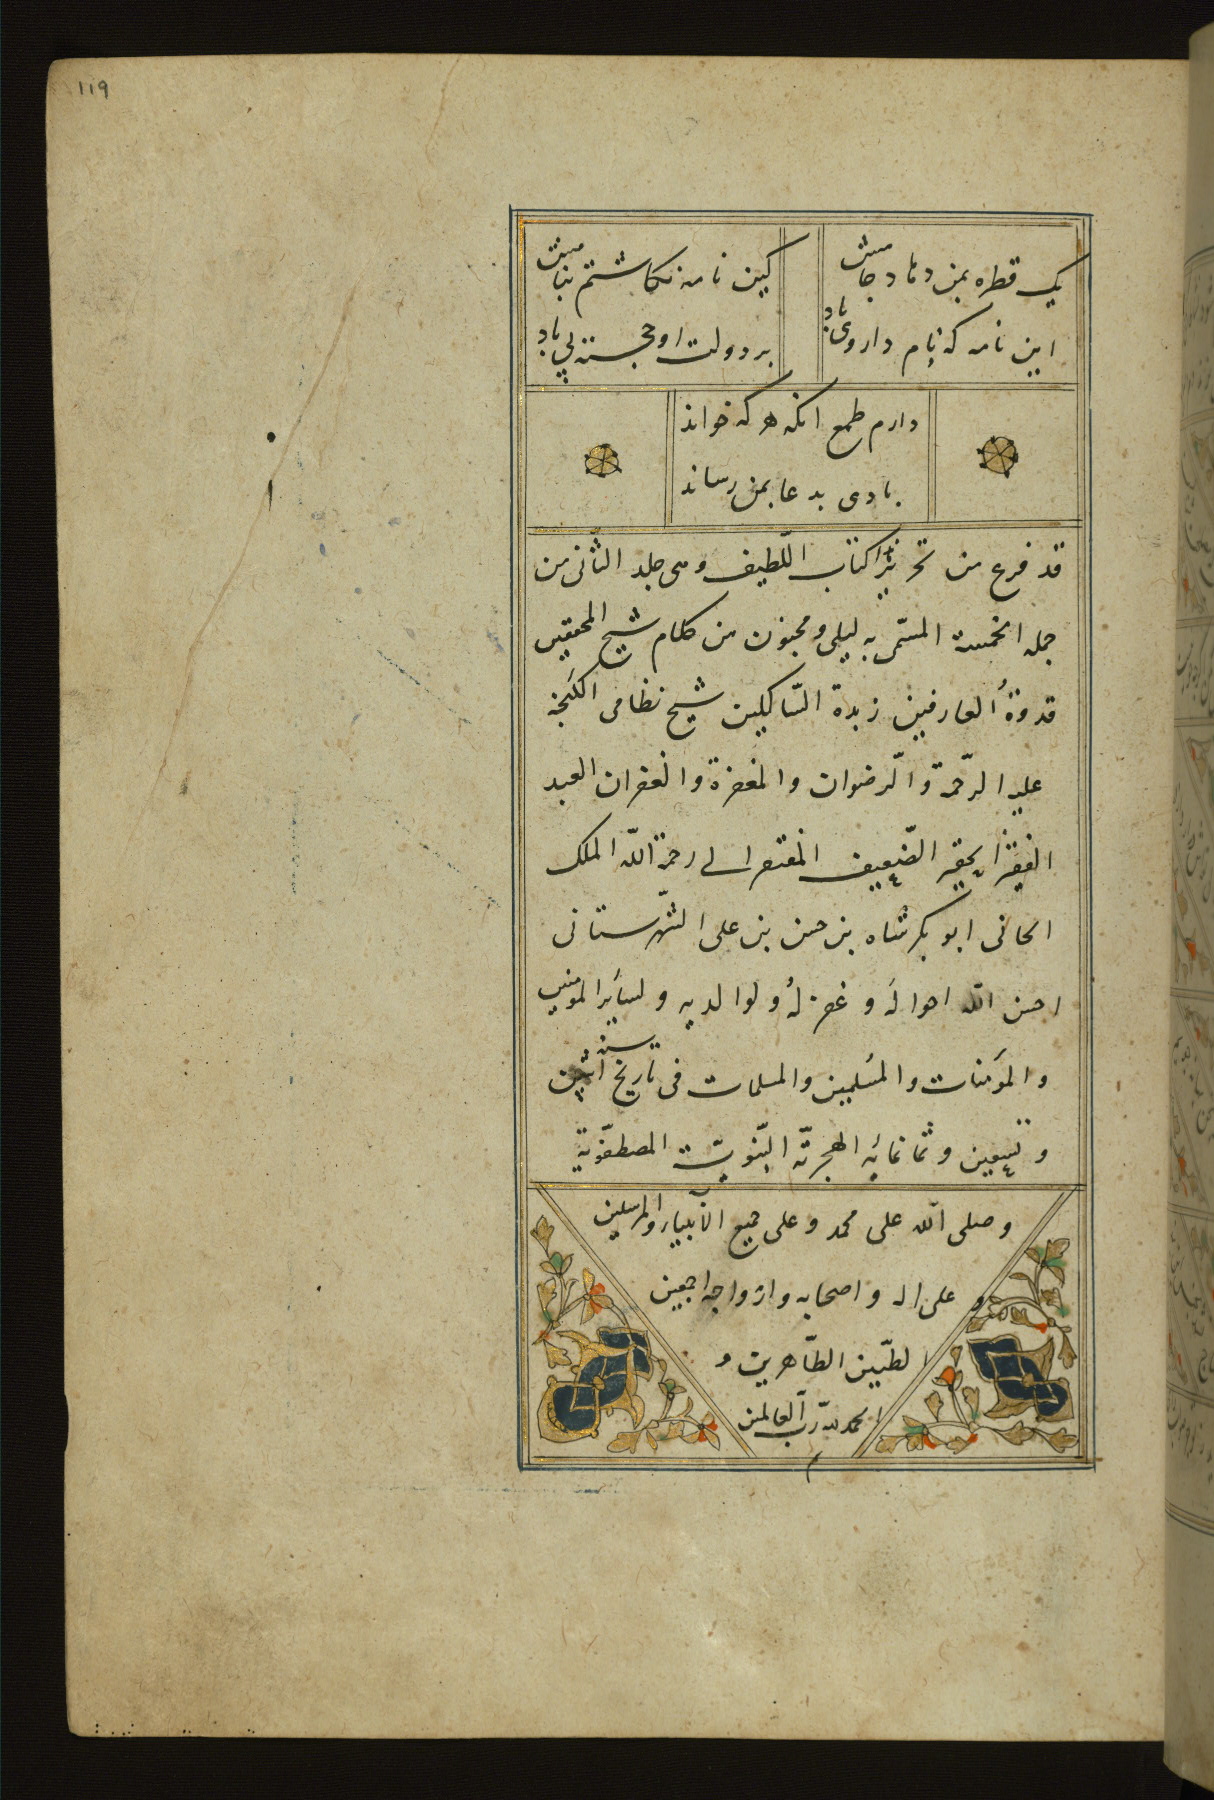 119
یک قطره بمن دماد جامیش
کین نامه نکاشتم بنامیش
این نامه که نام داروی باد
بر دولت او خجسته پی باد
دارم طمع انکه هر که خواند
بادی بدعا بمن رساند
قد فرغ من تحریر الکتاب اللّطیف وهی جلد الثّانی من
جمله الخمسة المسمّی به لیلی و مجنون من کلام شیخ المحققین
قدوةُ العارفین زبدة السّالکین شیخ نظامی الکنجه
علیه الرّحمة و الرّضوان والمغفرة و الغفران العبد
الفقیر الحقیر الضّعیف المفتقر الی رحمة اللّه الملک
الجانی ابو بکر شاه بن حسن بن علی الشّهرستانی
احسن اللّه احواله و غفر لهُ و لوالدیه و لسایر المومنین
والمؤمنات والمسلمین والمسلمات فی تاریخ سنه اثنین
و تسعین و ثمانمائه الهجریّه النّبویّة المصطفویّة
و صلی اللّه علی محمد و علی جمیع الانبیاء والمرسلین
و علی اله و اصحابه و ازواجه اجمعین
الطیّبین الطّاهرین و
الحمد لله ربّ العالمین